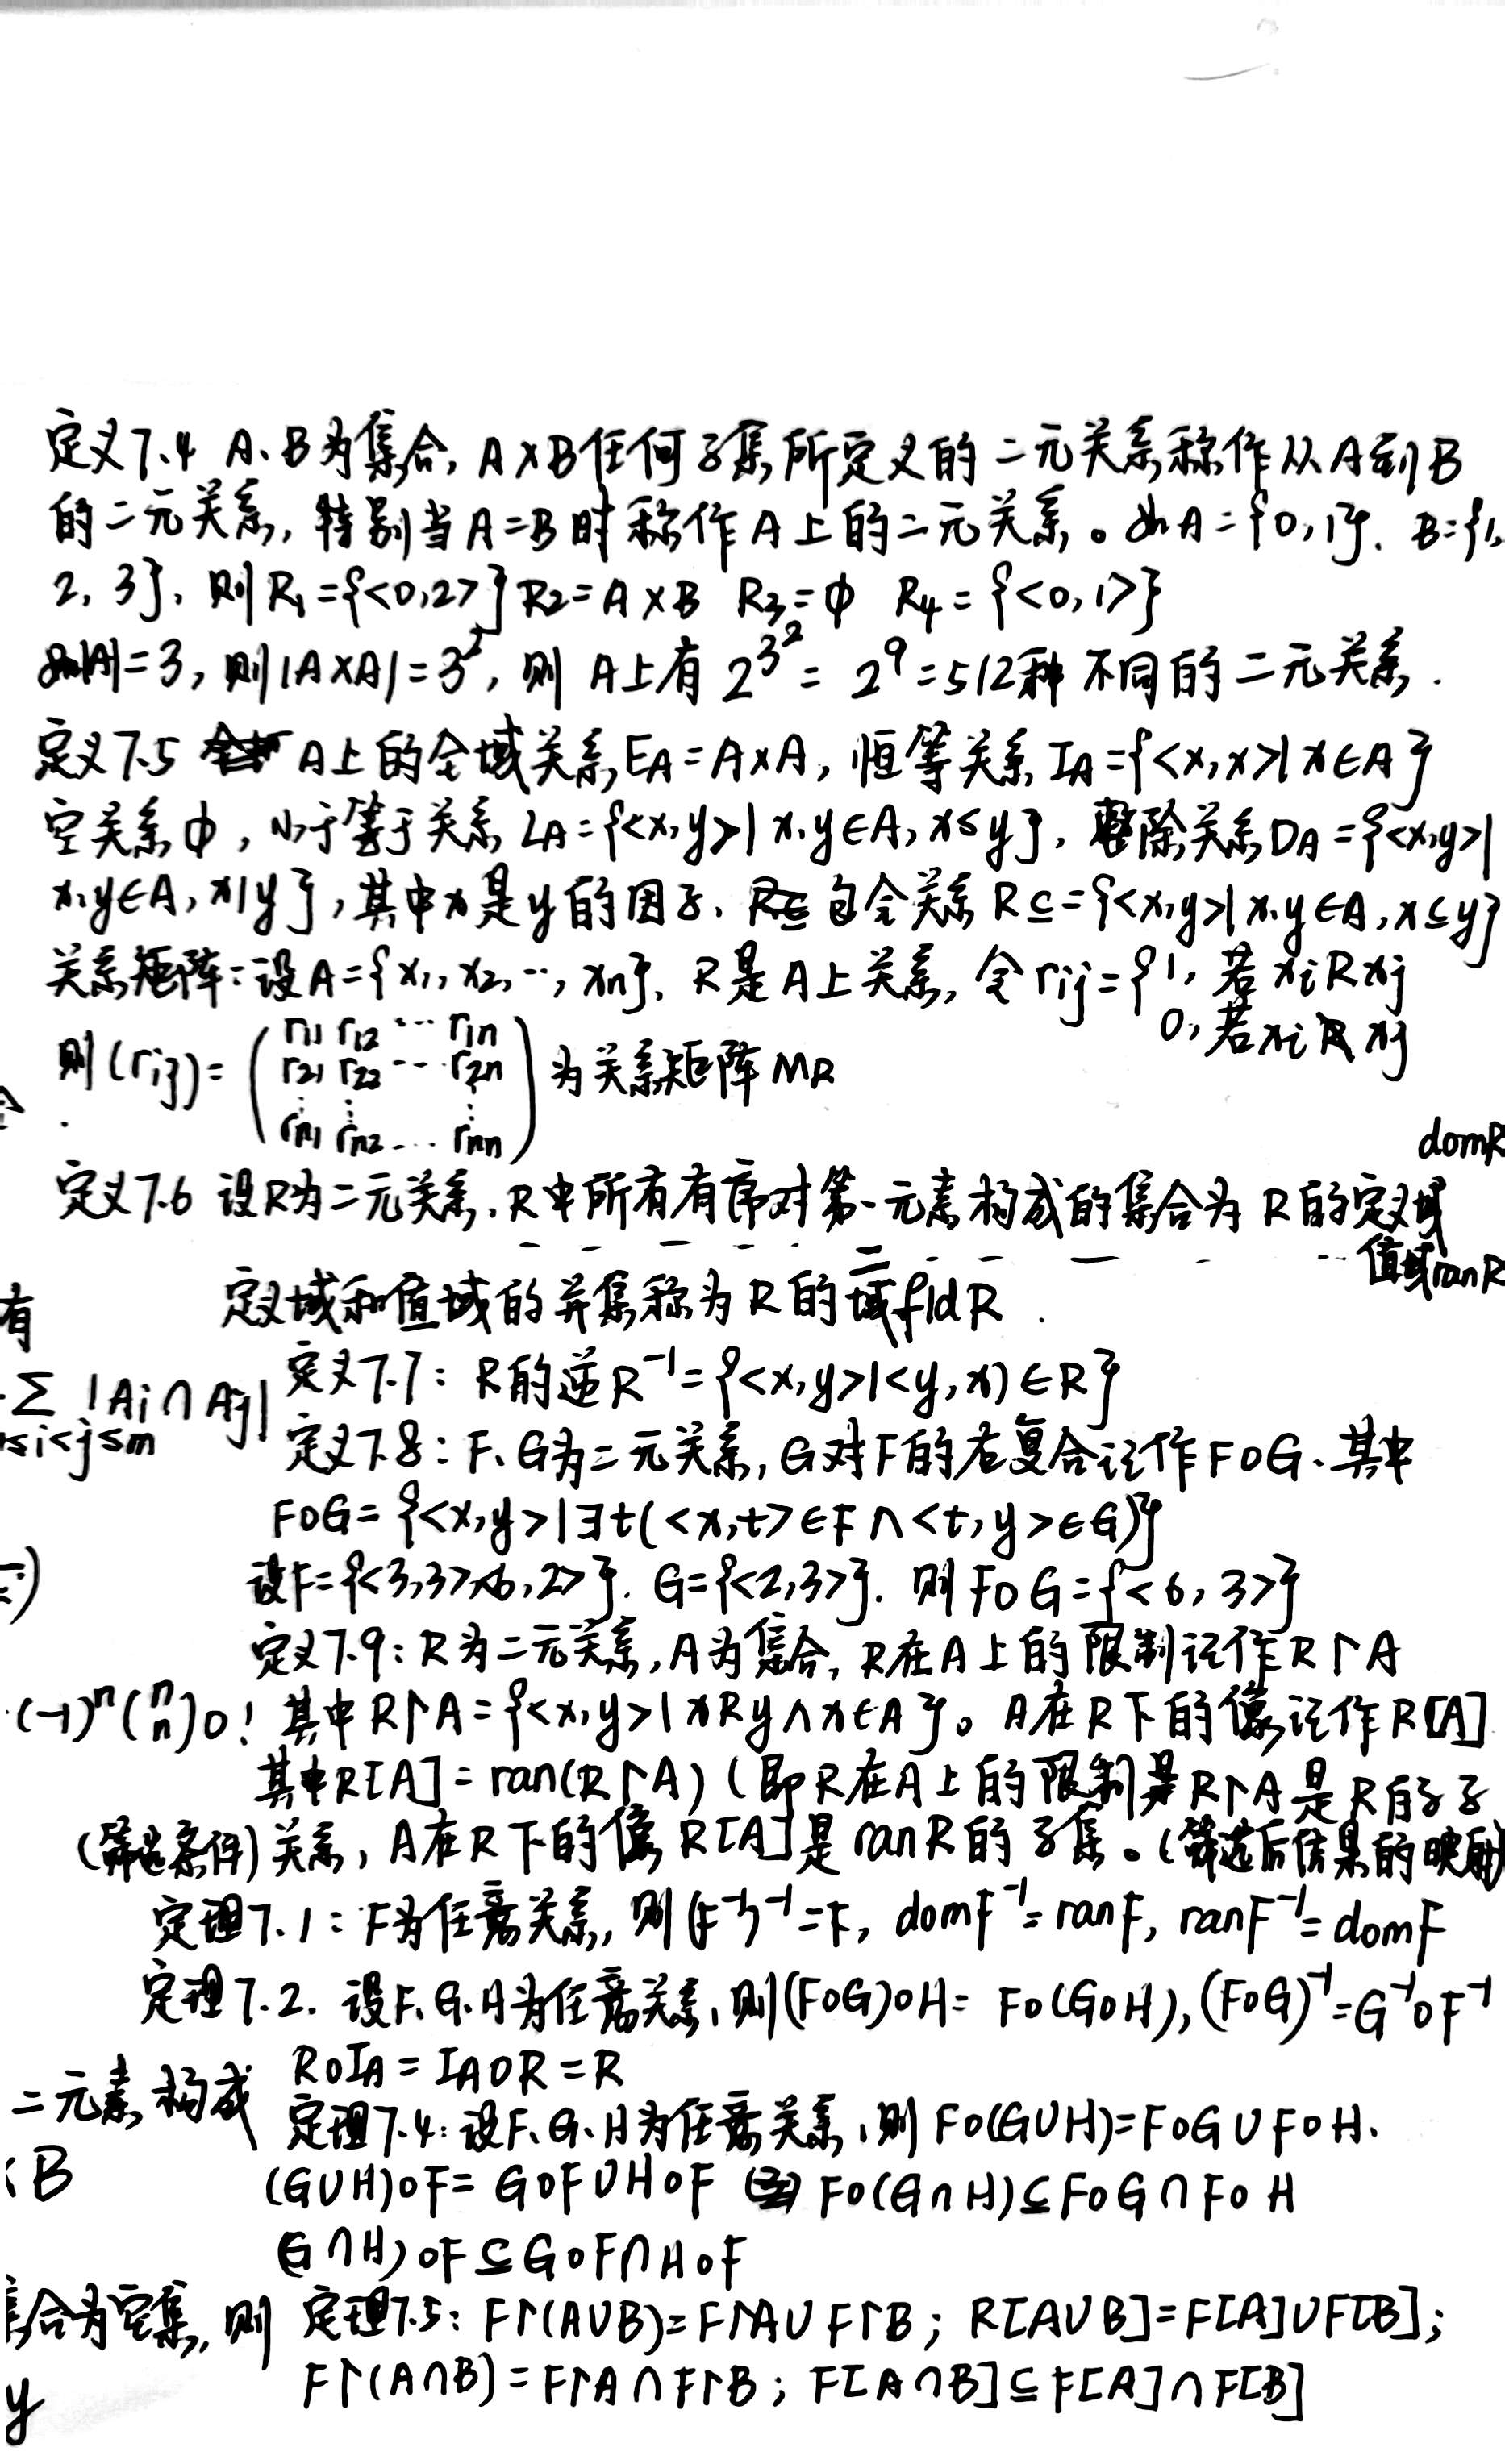 定义7.4 A、B为集合, A×B任何子集所定义的二元关系称作从A到B
的二元关系, 特别当A=B时称作A上的二元关系。如A={0,1}, B={1,
2, 3}, 则R₁={<0,2>} R₂=A×B R₃=φ R₄={<0,1>}
如|A|=3, 则|A×A|=3², 则A上有 2^3² = 2⁹=512种 不同的二元关系.
定义7.5 A上的全域关系E_A=A×A, 恒等关系 I_A={<x,x>|x∈A}
空关系φ, 小于等于关系 L_A={<x,y>|x,y∈A, x≤y}, 整除关系D_A={<x,y>|
x,y∈A, x|y}, 其中x是y的因子. 包含关系 R⊆={<x,y>|x,y∈A, x⊆y}
关系矩阵:设A={x₁, x₂, …, xn}, R是A上关系, 令rij={1, 若xiRxj
0, 若xi R̸ xj
则(rij)=
r11 r12 … r1n
r21 r22 … r2n
⋮ ⋮ ⋮
rn1 rn2 … rnn
为关系矩阵MR
domR
定义7.6 设R为二元关系, R中所有有序对第一元素构成的集合为R的定义域
二
值域ranR
有
定义域和值域的并集称为R的域fldR.
定义7.7: R的逆R⁻¹={<x,y>|<y,x>∈R}
∑ |Ai∩Aj|
≤i<j≤m
定义7.8: F、G为二元关系, G对F的右复合记作F∘G、其中
F∘G={<x,y>|∃t(<x,t>∈F∧<t,y>∈G)}
设F={<3,3>,<6,2>}. G={<2,3>}. 则F∘G={<6,3>}
定义7.9: R为二元关系, A为集合, R在A上的限制记作R↾A
(-1)ⁿ(n n)0! 其中R↾A={<x,y>|xRy∧x∈A}。A在R下的像记作R[A]
其中R[A]=ran(R↾A) (即R在A上的限制R↾A是R的子
(筛选条件)关系, A在R下的像R[A]是ranR的子集。(筛选后结果的映射)
定理7.1: F为任意关系, 则(F⁻¹)⁻¹=F, domF⁻¹=ranF, ranF⁻¹=domF
定理7.2. 设F、G、H为任意关系, 则(F∘G)∘H=F∘(G∘H), (F∘G)⁻¹=G⁻¹∘F⁻¹
R∘I_A=I_A∘R=R
二元素构成
定理7.4: 设F、G、H为任意关系, 则F∘(G∪H)=F∘G∪F∘H.
B
(G∪H)∘F=G∘F∪H∘F F∘(G∩H)⊆F∘G∩F∘H
(G∩H)∘F⊆G∘F∩H∘F
合为空集, 则
定理7.5: F↾(A∪B)=F↾A∪F↾B; R[A∪B]=F[A]∪F[B];
y
F↾(A∩B)=F↾A∩F↾B; F[A∩B]⊆F[A]∩F[B]